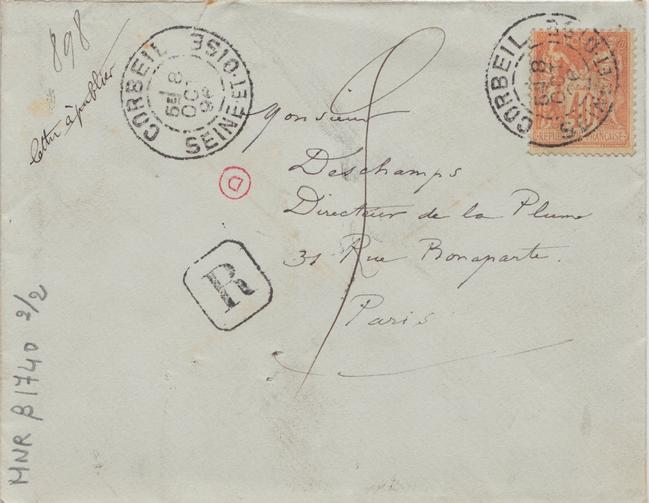 898
Lettre à publier
CORBEIL
SEINE ET OISE
8
OCT
96
CORBEIL
SEINE ET OISE
8
OCT
40
REPUBLIQUE FRANÇAISE
Monsieur
Deschamps
Directeur de la Plume
31 Rue Bonaparte.
Paris
D
R
MNR β1740 2/2